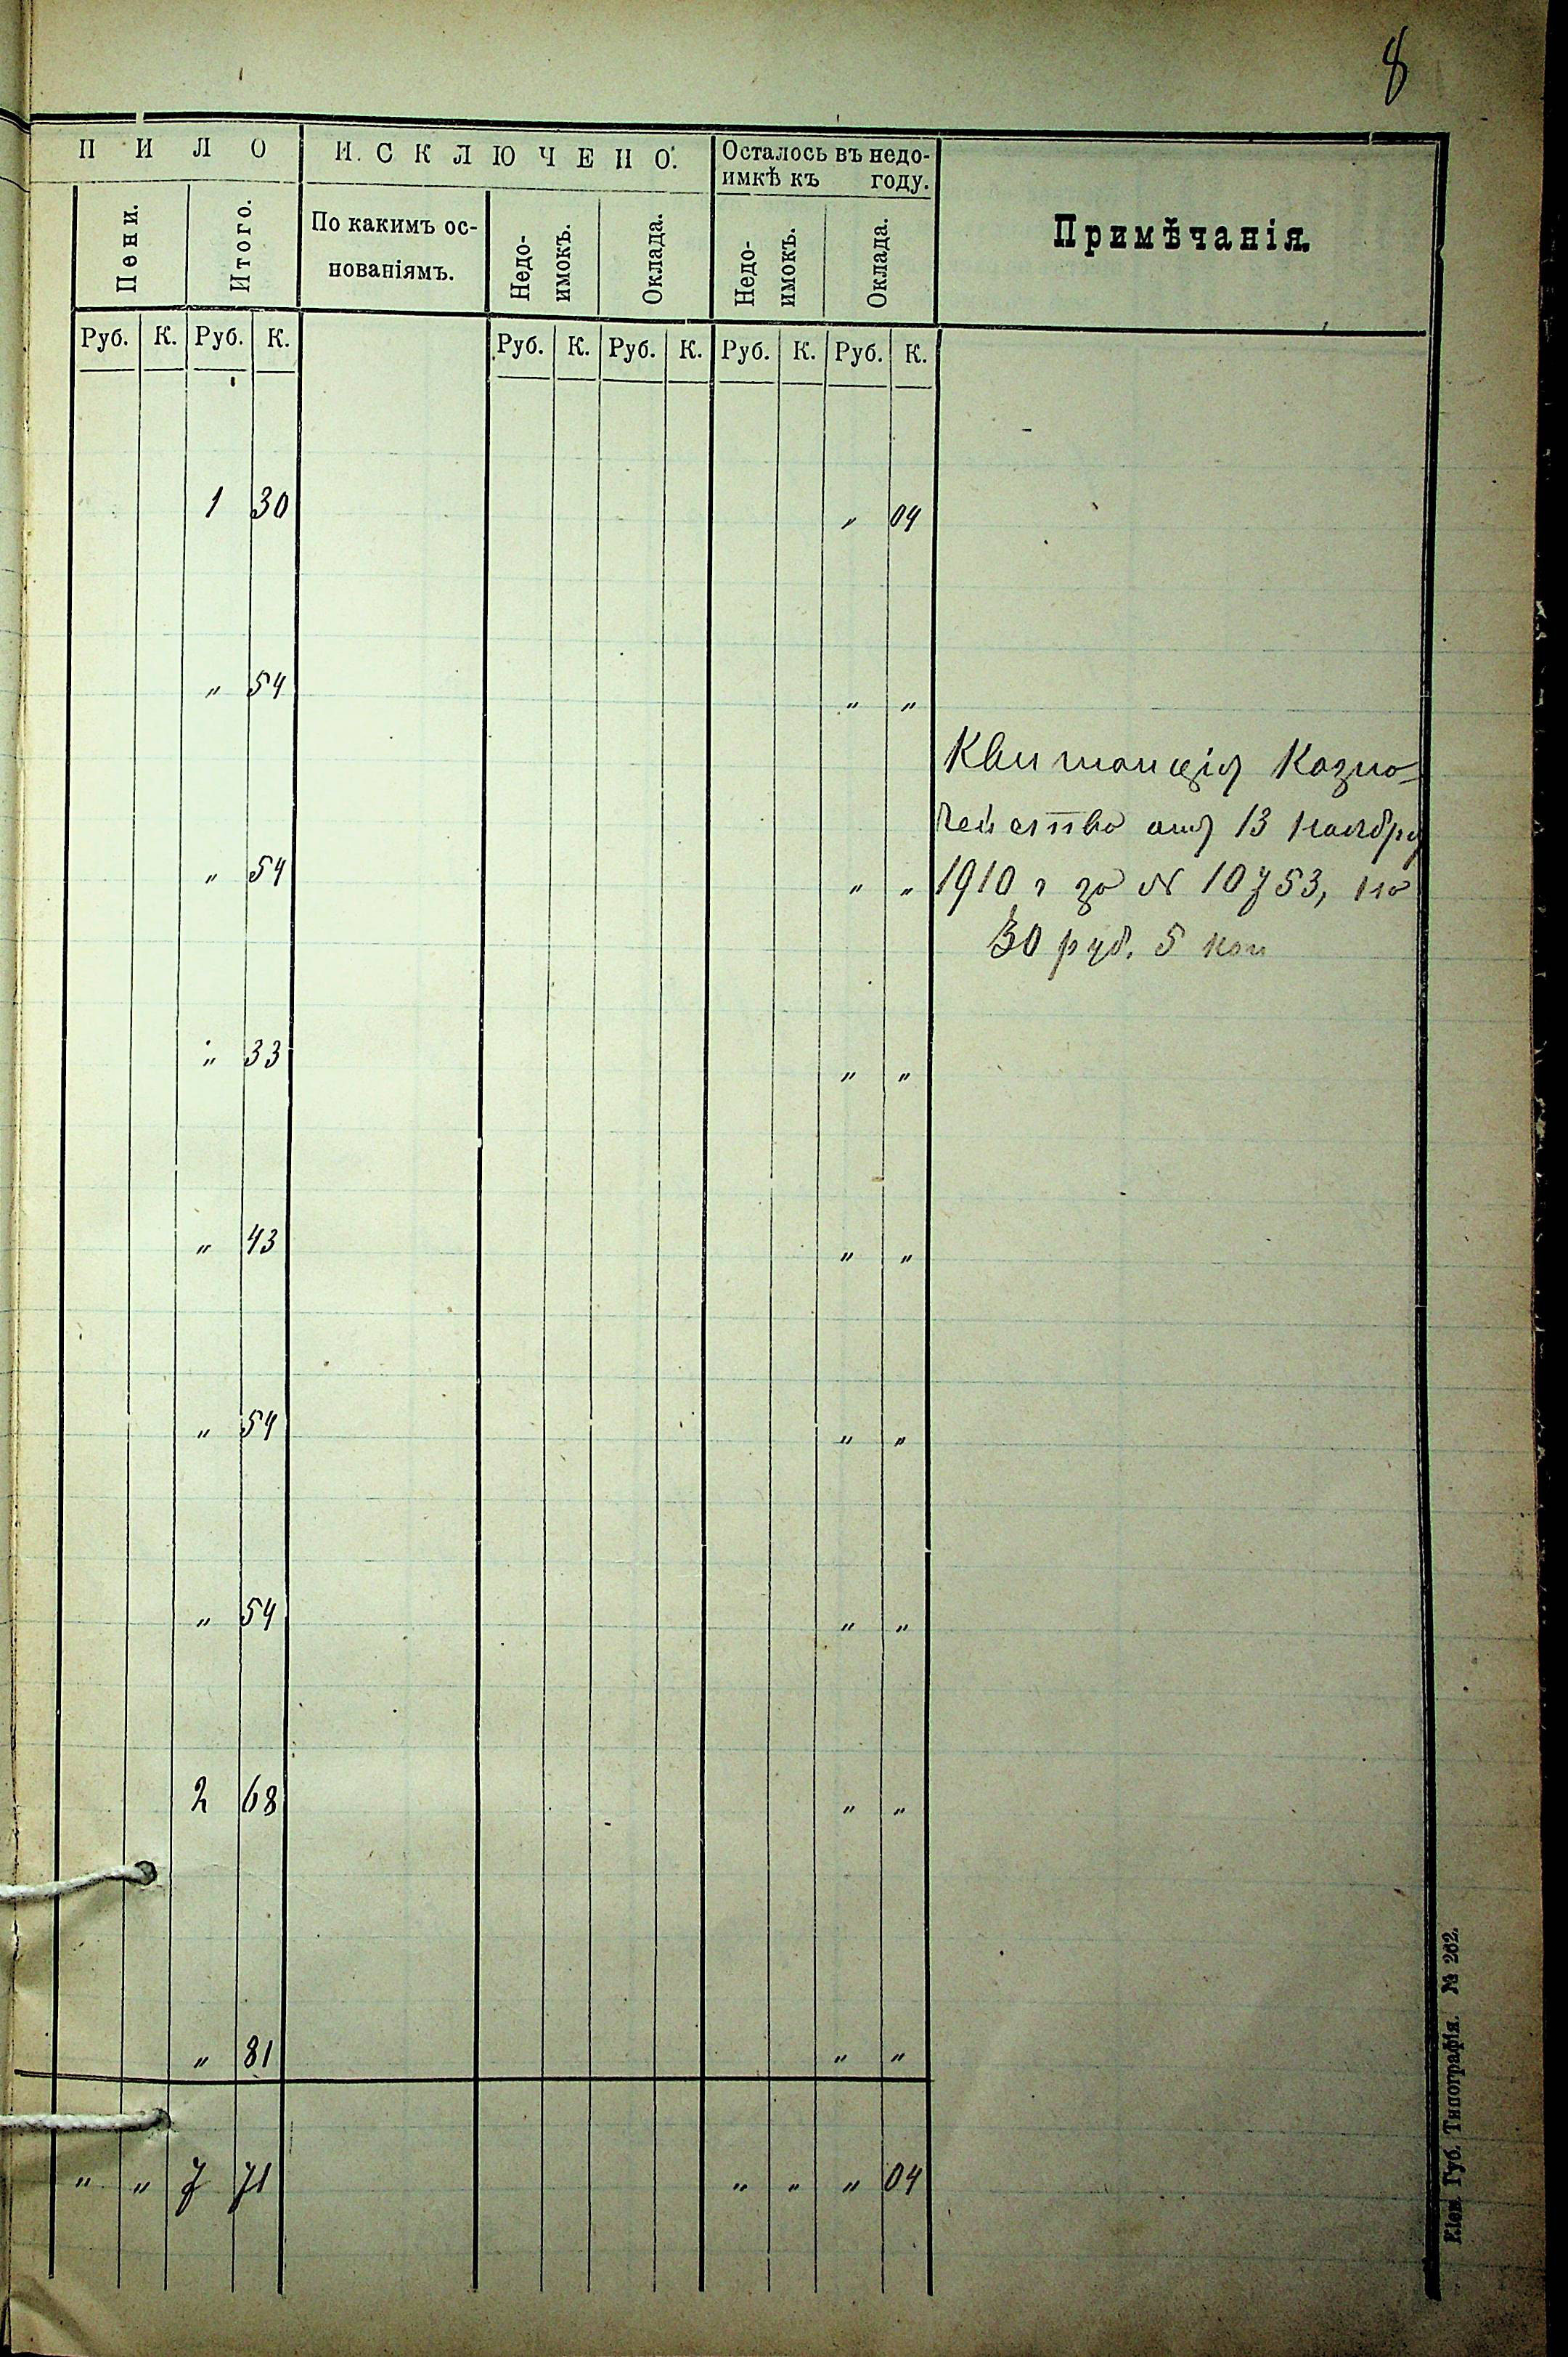 8
ПИЛО
ИСКЛЮЧЕНО.
Осталось въ недо-
имкѣ къ году.
Примѣчанія.
Пени.
Итого.
По какимъ ос-
нованіямъ.
Недо-
имокъ.
Оклада.
Недо-
имокъ.
Оклада.
Руб. К. Руб. К. Руб. К. Руб. К. Руб. К. Руб. К.
1 30 " 04
" 54 " "
Квитанція Казна-
чейства отъ 13 Ноября
" 54 " " 1910 г за № 10753, на
30 руб. 5 коп
" 33 " "
" 43 " "
" 54 " "
" 54 " "
2 68 " "
" 81 " "
" " 7 71 " " " 04
Кіев. Губ. Типографія. № 262.